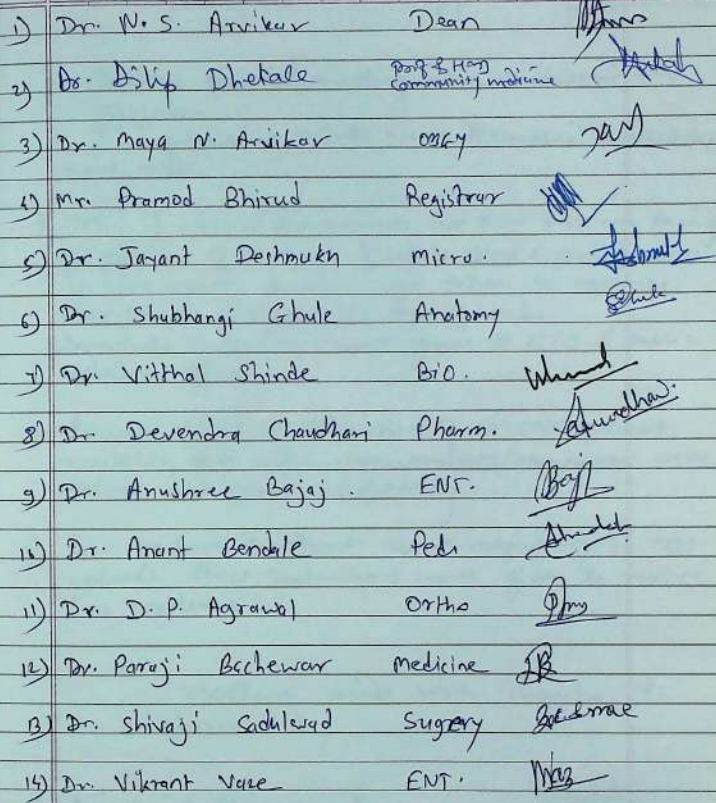 1) Dr. N. S. Arvikar Dean
2) Dr. Dilip Dhekale Prof & HOD Community medicine
3) Dr. Maya N. Arvikar OBGY
4) Mr. Pramod Bhirud Registrar
5) Dr. Jayant Deshmukh Micro.
6) Dr. Shubhangi Ghule Anatomy
7) Dr. Vitthal Shinde Bio.
8) Dr. Devendra Chaudhari Pharm.
9) Dr. Anushree Bajaj. ENT.
10) Dr. Anant Bendale Pedi
11) Dr. D. P. Agrawal Ortho
12) Dr. Paraji Bachewar Medicine
13) Dr. Shivaji Sadulwad Sugrery
14) Dr. Vikrant Vaze ENT.